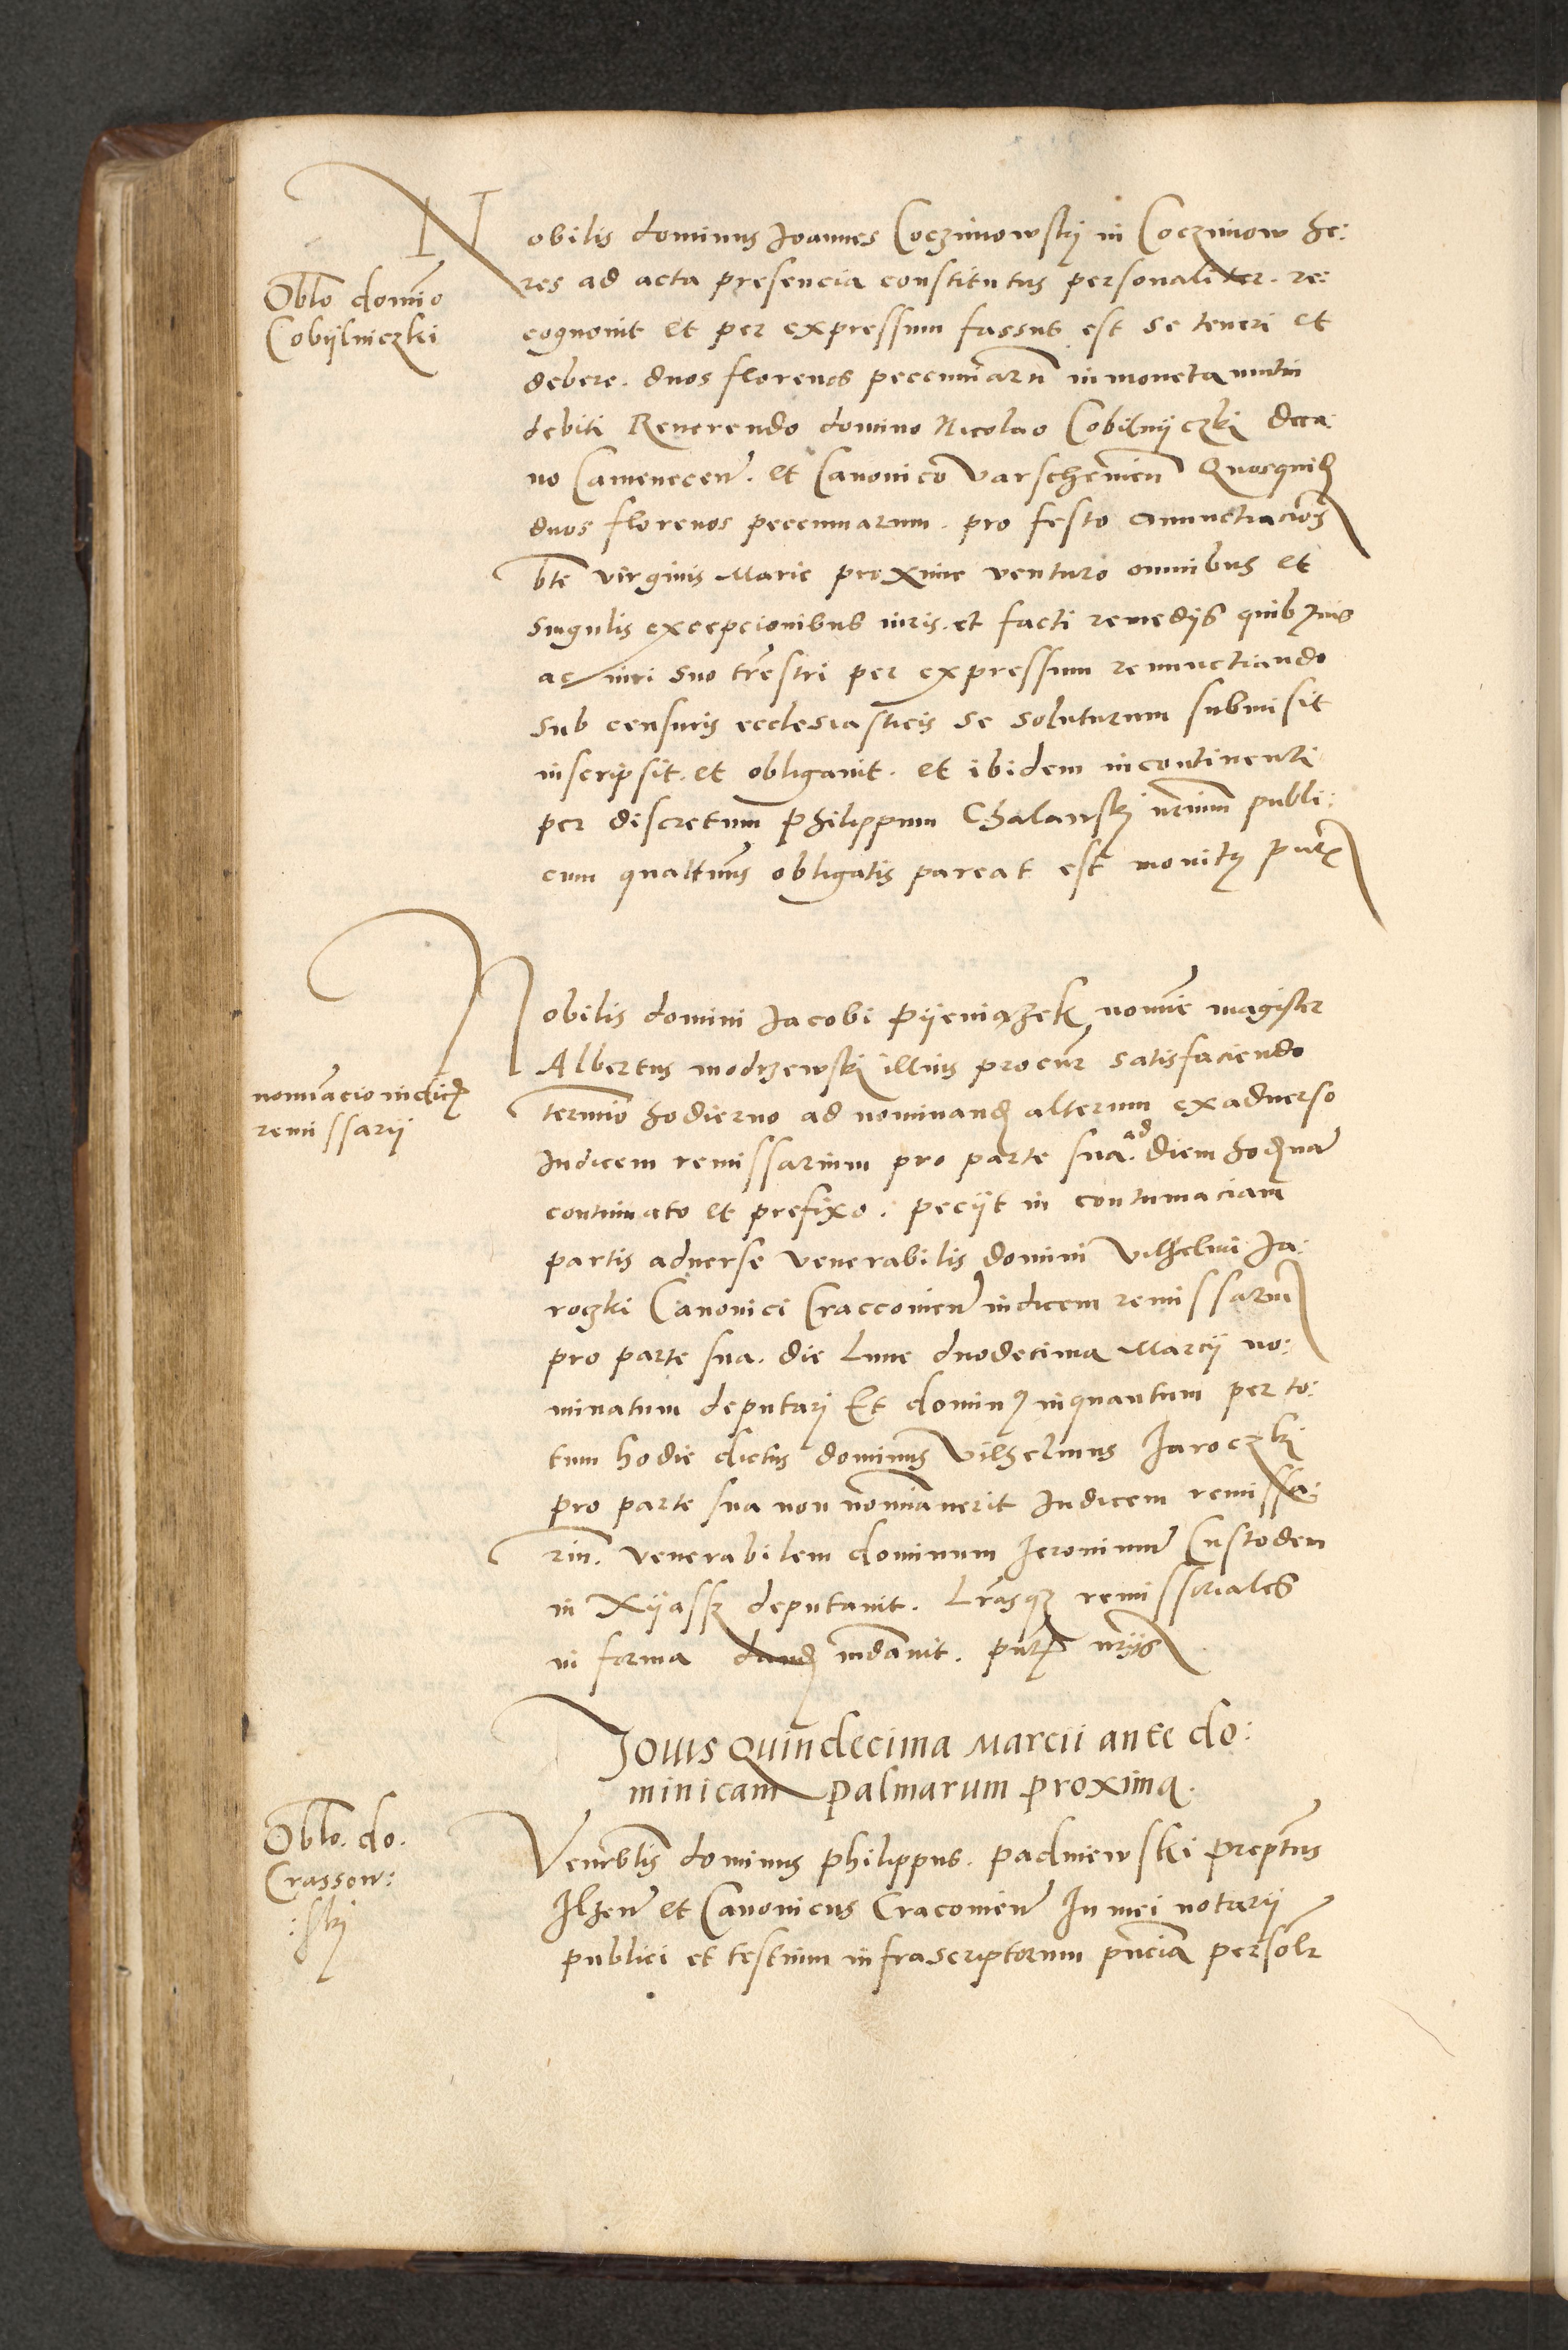 Nobilis dominus Joannes Coczmowskÿ in Coczmow he:
res ad acta presencia constitutus personaliter. re:
cognovit et per expressum fassus est se teneri et
debere. duos florenos pecuniarũ in moneta mutui
debiti Reverendo domino Nicolao Cobilnÿczki deca:
no Camenecen̄. et Canonico Varschevien̄ Quosquid
duos florenos pecuniarum. pro festo Annunctiacion̄
bte virginis Marie proxime venturo omnibus et
singulis excepcionibus iuris. et facti remedÿs quibꝫuis
ac iuri suo trestri per expressum renunctiando
sub censuris ecclesiasticis se soluturum submisit
inscripsit. et obligavit. et ibidem incontinenti
per discretum Philippum Chalanskÿ nrium publi:
cum quattinus obligatis pareat est monitꝫ pntꝫ
Oblo domino
Cobÿlniczki
Nobilis domini Jacobi Pÿeniązek nomine magister
Albertus modrzewskÿ illius procur̄ satisfaciendo
termino hodierno ad nominand alterum exadverso
Judicem remissarium pro parte sua. ad diem hodiernā
continuato et prefixo. peciit in contumaciam
partis adverse venerabilis domini Vilhelmi Ja:
roczki Canonici Craccovien̄ iudicem remissariū
pro parte sua. die Lune duodecima Marcÿ no:
minatum deputari Et dominꝫ inquantum per to:
tum hodie dictus dominus Vilhelmus Jaroczkÿ
pro parte sua non nominaverit Judicem remissa:
riū. venerabilem dominum Jeronimū Custodem
in Xÿassz deputavit. Lr̄asqꝫ remissoriales
in forma dand mdavit. pntꝫ nrÿs
nominacio iudicꝫ
remissarii
Jovis quindecima Marcii ante do:
minicam palmarum proxima.
Venrblis dominus Philippus. padniewski preptus
Ilzen̄ et Canonicus Cracovien̄ In mei notarii
publici et testium infrascriptorum pnciā personlr
Oblo. do.
Crassow:
:skÿ